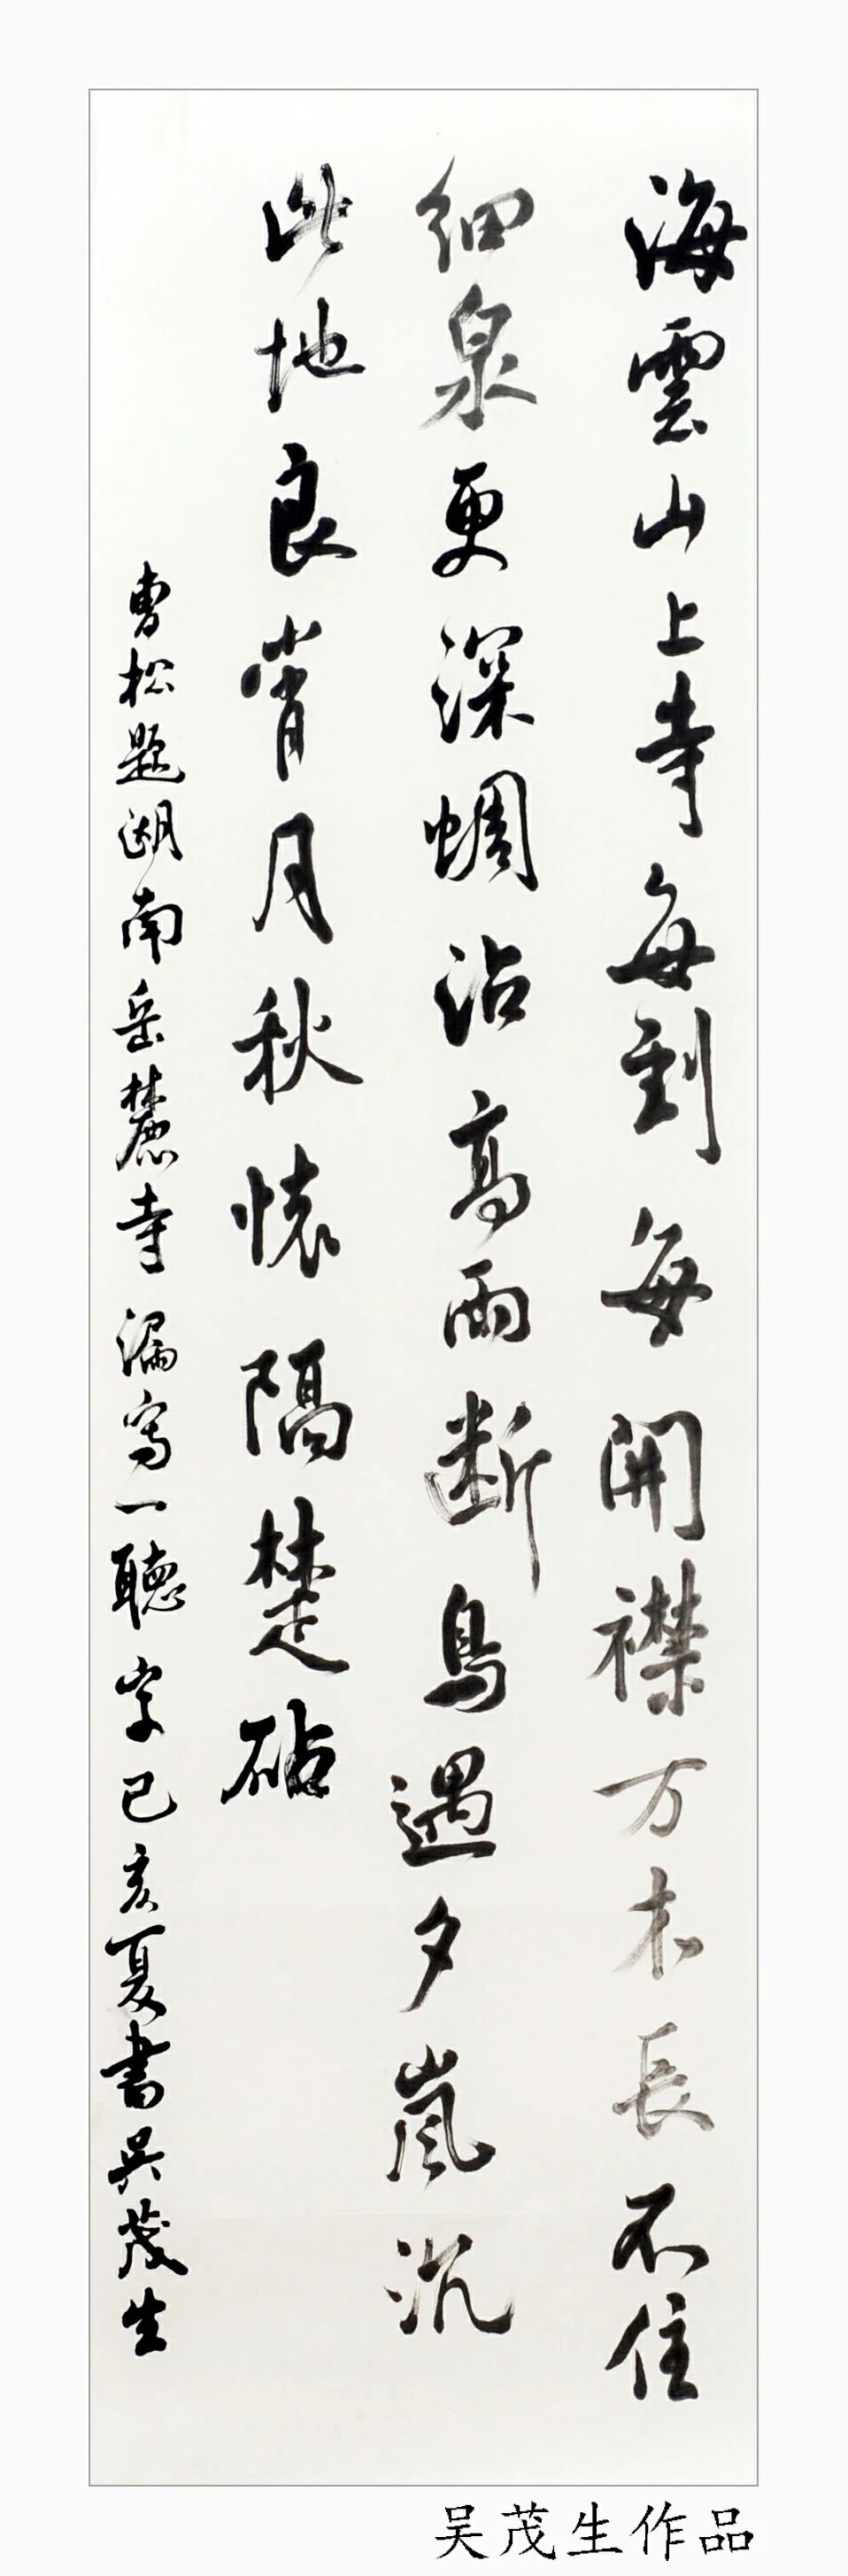 海雲山上寺每到每開襟万木長不住
細泉更深蜩沾高雨断鳥遇夕嵐沉
此地良宵月秋懐隔楚砧
曹松题湖南岳麓寺漏寫一聴字己亥夏書吴茂生
吴茂生作品